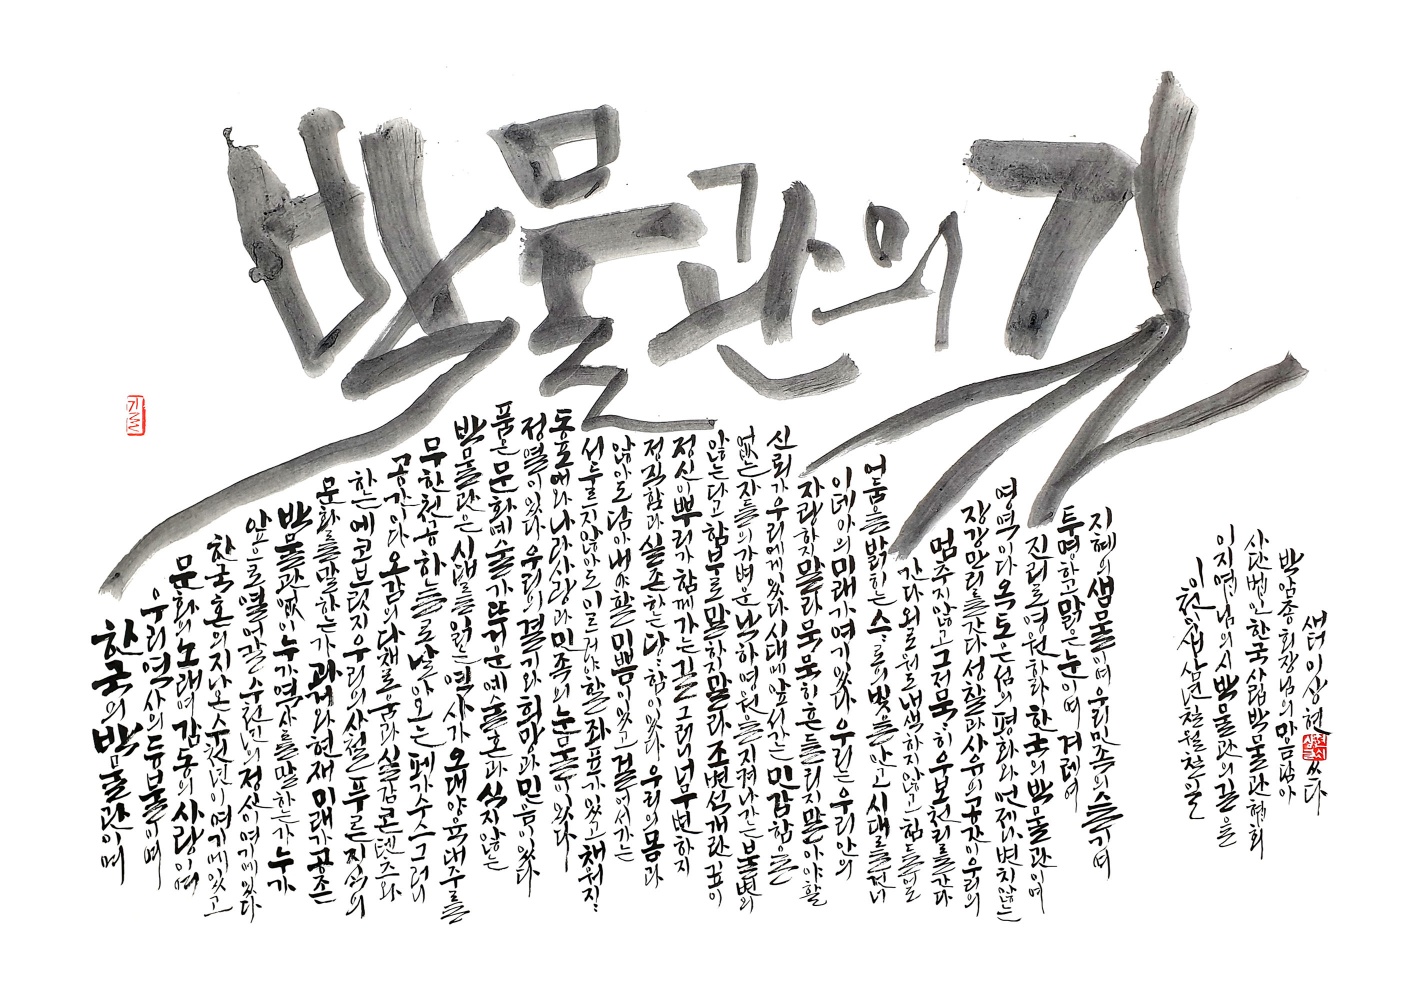 박물관의 길
한국의 박물관이여
우리 역사의 등불이며
문화의 노래며 감동의 사랑이여
한국 혼의 지나온 수천년이 여기에 있고
앞으로 열어갈 수천년의 정신이 여기에 있다
박물관 없이 누가 역사를 말하는가 누가
문화를 말하는가 과거와 현재 미래가 공존
하는 에코브릿지 우리의 사철 푸르른 지식의
공간이다 오감의 다채로움과 실감콘텐츠와
무한천공 하늘로 날아오는 페가수스 그러니
박물관은 시대를 읽는 역사가 오대양 육대주를
품은 문화예술가 뜨거운 예술혼과 식지않는
정열이 있다 우리의 결기와 희망과 믿음이 있다
동포애와 나라사랑과 민족의 눈물이 있다
서두르지 않아도 이르러야 할 좌표가 있고 채워지지
않아도 담아내야 할 미쁨이 있고 걸어서가는
정직함과 실존한는 당당함이 있다 우리의 몸과
정신이 뿌리가 함께가는 길 그러니 너무 변하지
않는다고 함부로 말하지말라 조변석개란 깊이
없는 자들의 가벼운 낙하 영원을 지켜나가는 불변의
신뢰가 우리에게 있다 시대에 앞서가는 민감함을
자랑하지말라 묵묵히 흔들리지 말아야할
이데아의 미래가 여기 있다 우리는 우리 안의
어둠을 밝히는 스스로의 빛을 안고 시대를 건너
간다 외로워도 내색하지 않고 힘들어도
멈추지 않고 그저 묵묵히 우보천리를 간다
장강만리를 간다 성찰과 사유의 공간이 우리의
영역이다 옥토은섬의 평화와 언제나 변치않는
진리로 영원하라 한국의 박물관이여
투명하고 맑은 눈이여 겨레여
지혜의 샘물이며 우리 민족의 슬기여
이천이십삼년 칠월칠일
이지엽님의 시 박물관의 길을
사단법인 한국사립박물관협회
박암종 회장님의 마음담아
새터 이상현 쓰다